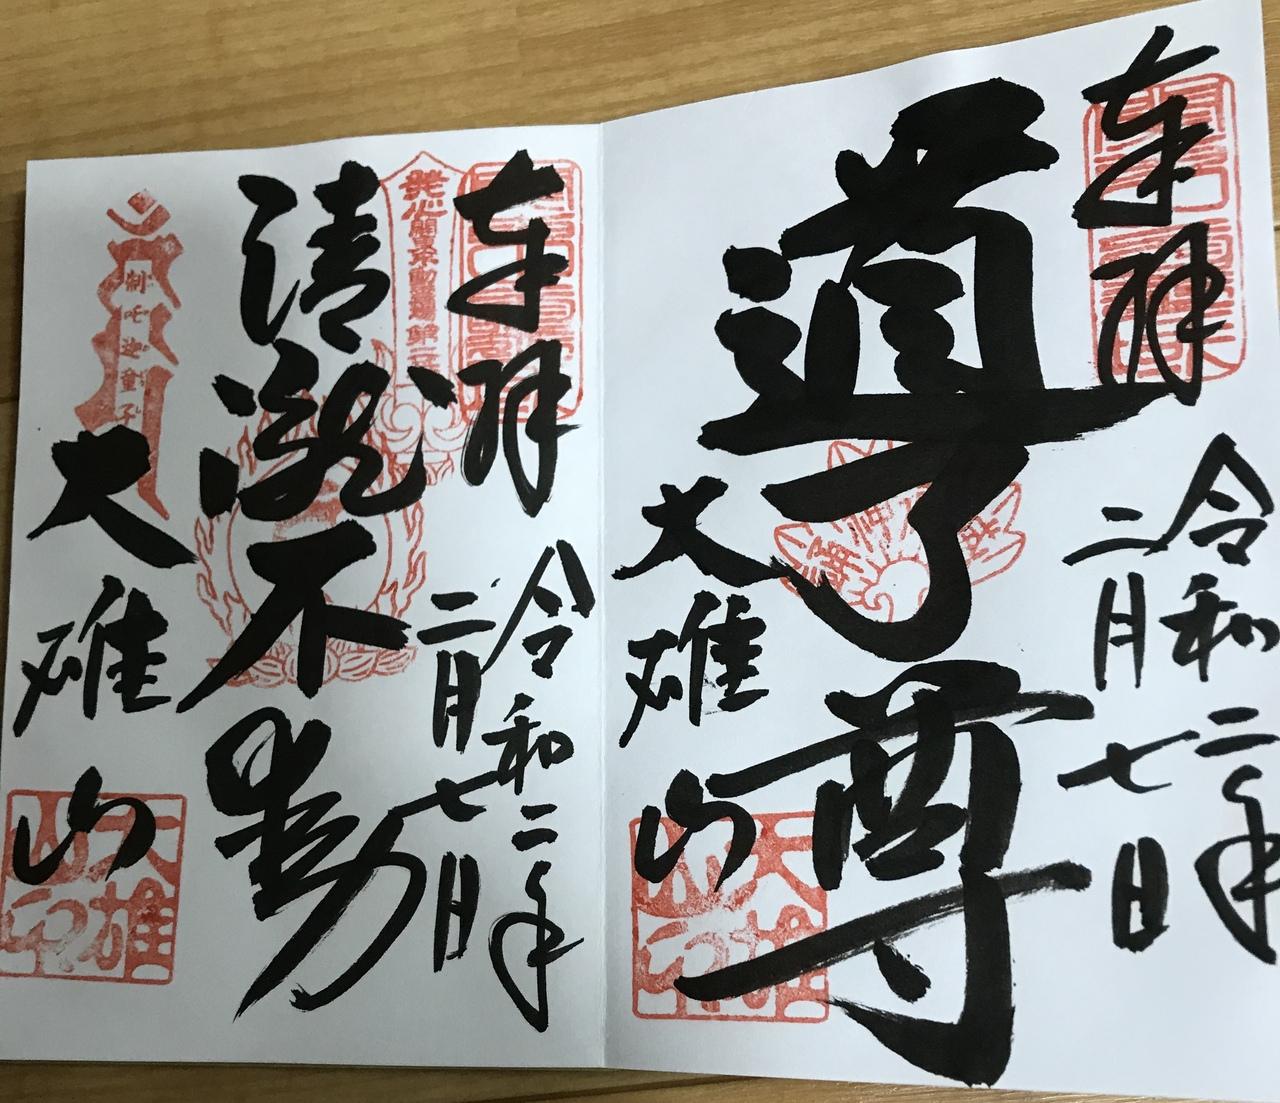 奉拝
令和二年
二月七日
道了尊
大雄山
奉拝
令和二年
二月七日
発心 関東不動霊場 第一番
清瀧不動
制吒迦童子
大雄山
大雄山印